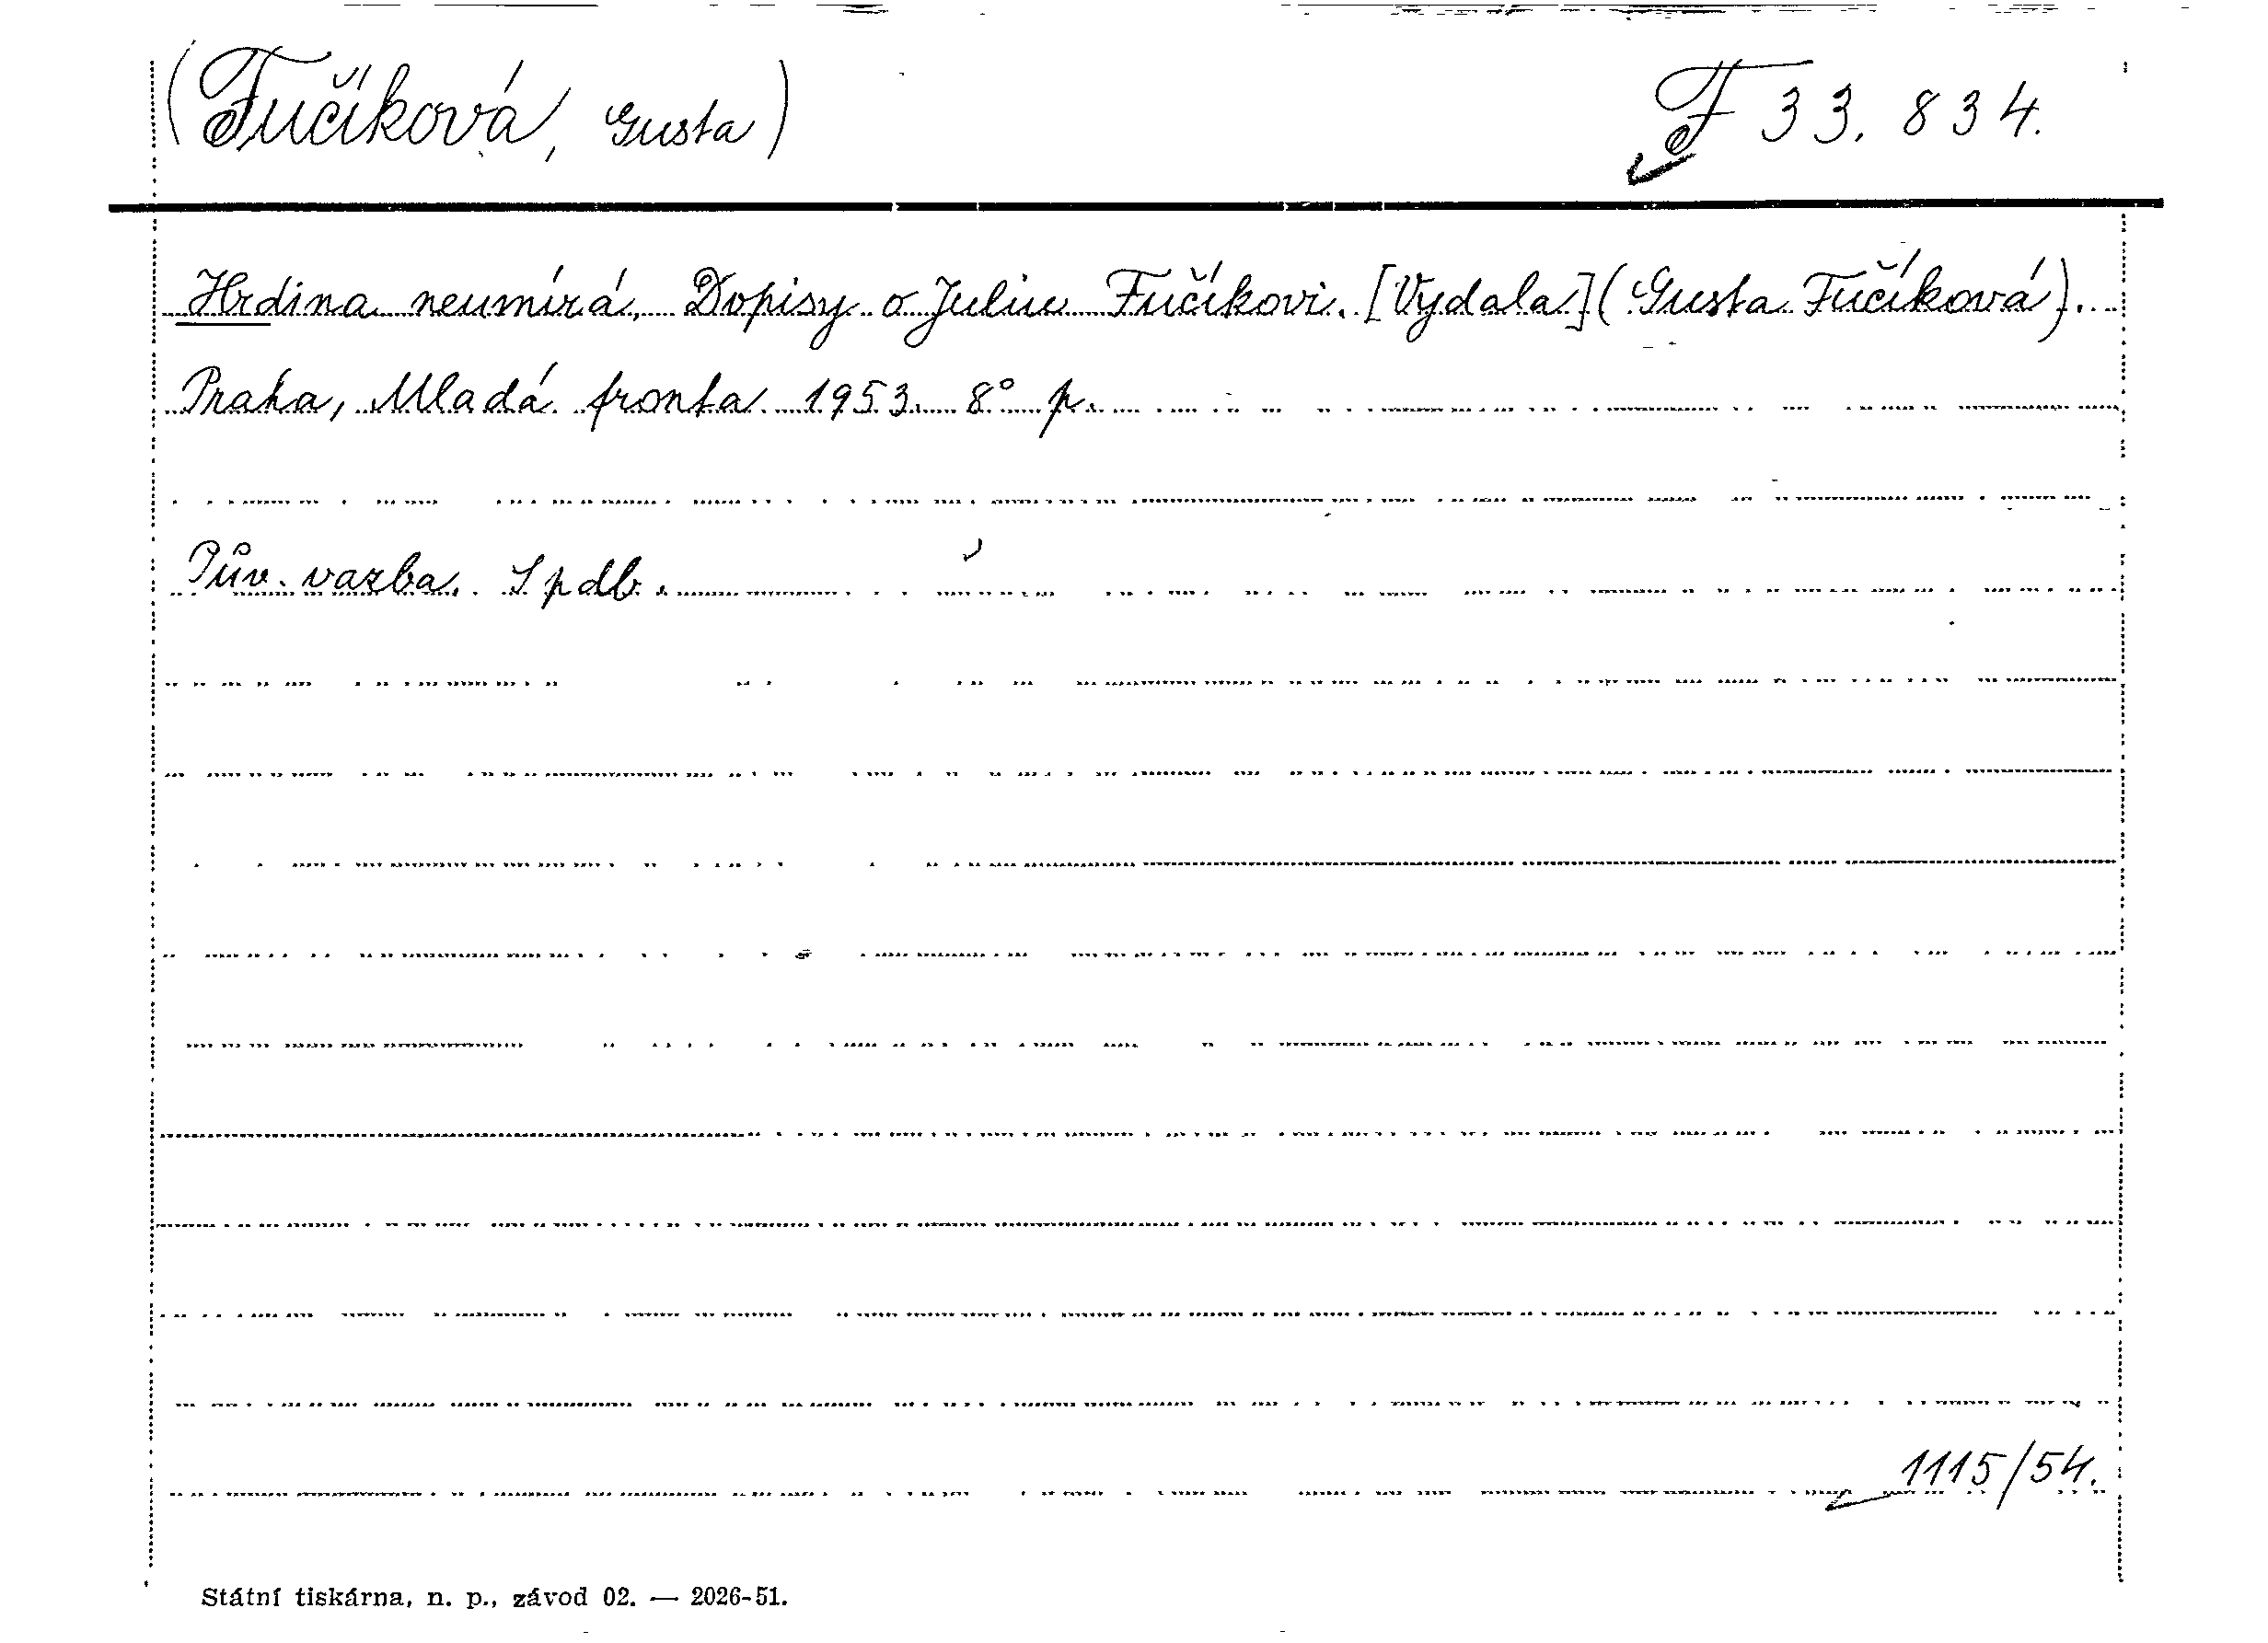 (Fučíková, Gusta) F 33.834.
Hrdina neumírá. Dopisy o Juliu Fučíkovi. [Vydala] (Gusta Fučíková).
Praha, Mladá fronta 1953. 8° p.
Pův. vazba. S pdb.
1115/54.
Státní tiskárna, n. p., závod 02. — 2026-51.